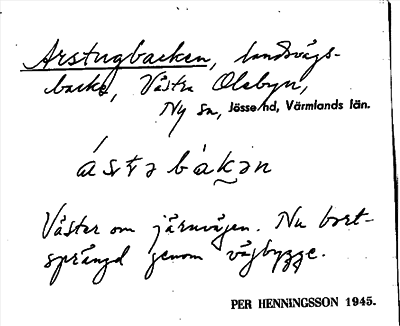 Arstugbacken, landsvägs-
backe, Västra Olsbyn,
Ny sn, Jösse hd, Värmlands län.
ástəbàkən
Väster om järnvägen. Nu bort-
sprängd genom vägbygge.
PER HENNINGSSON 1945.